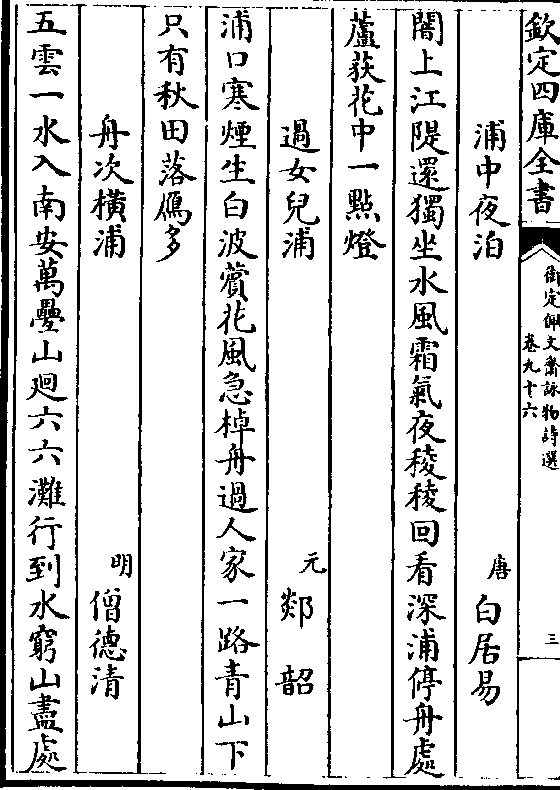 欽定四庫全書
御定佩文齋詠物詩選
卷九十六
三
浦中夜泊
唐 白居易
闇上江隄還獨坐水風霜氣夜稜稜回看深浦停舟處
蘆荻花中一點燈
過女兒浦
元 郯韶
浦口寒煙生白波薲花風急棹舟過人家一路青山下
只有秋田落鴈多
舟次横浦
明 僧德清
五雲一水入南安萬疊山廻六六灘行到水窮山盡處